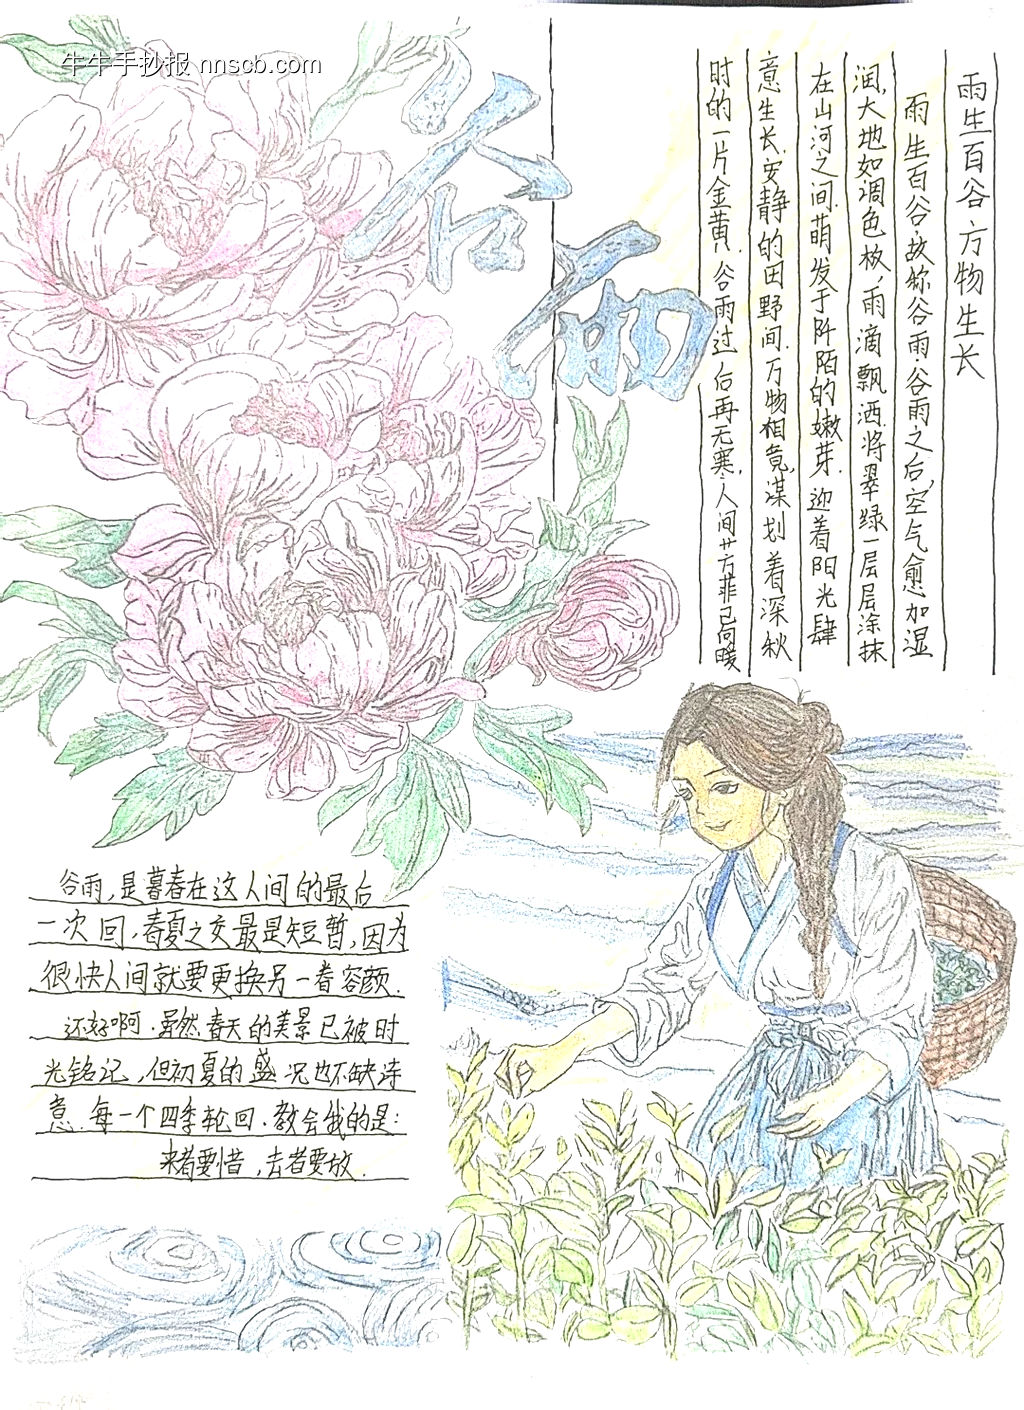 牛牛手抄报 nnscb.com
谷雨
雨生百谷万物生长
雨生百谷,故称谷雨谷雨之后,空气愈加湿
润,大地如调色板、雨滴飘洒.将翠绿一层层涂抹
在山河之间.萌发于阡陌的嫩芽.迎着阳光肆
意生长.安静的田野间.万物相竟,谋划着深秋
时的一片金黄、谷雨过后再无寒,人间廿方菲已向暖
谷雨,是暮春在这人间的最后
一次回,春夏之交最是短暂,因为
很快人间就要更换另一卷容颜.
还好啊.虽然春天的美景已被时
光铭记,但初夏的盛况也不缺诗
意.每一个四季轮回.教会我的是:
来者要惜,去者要放.